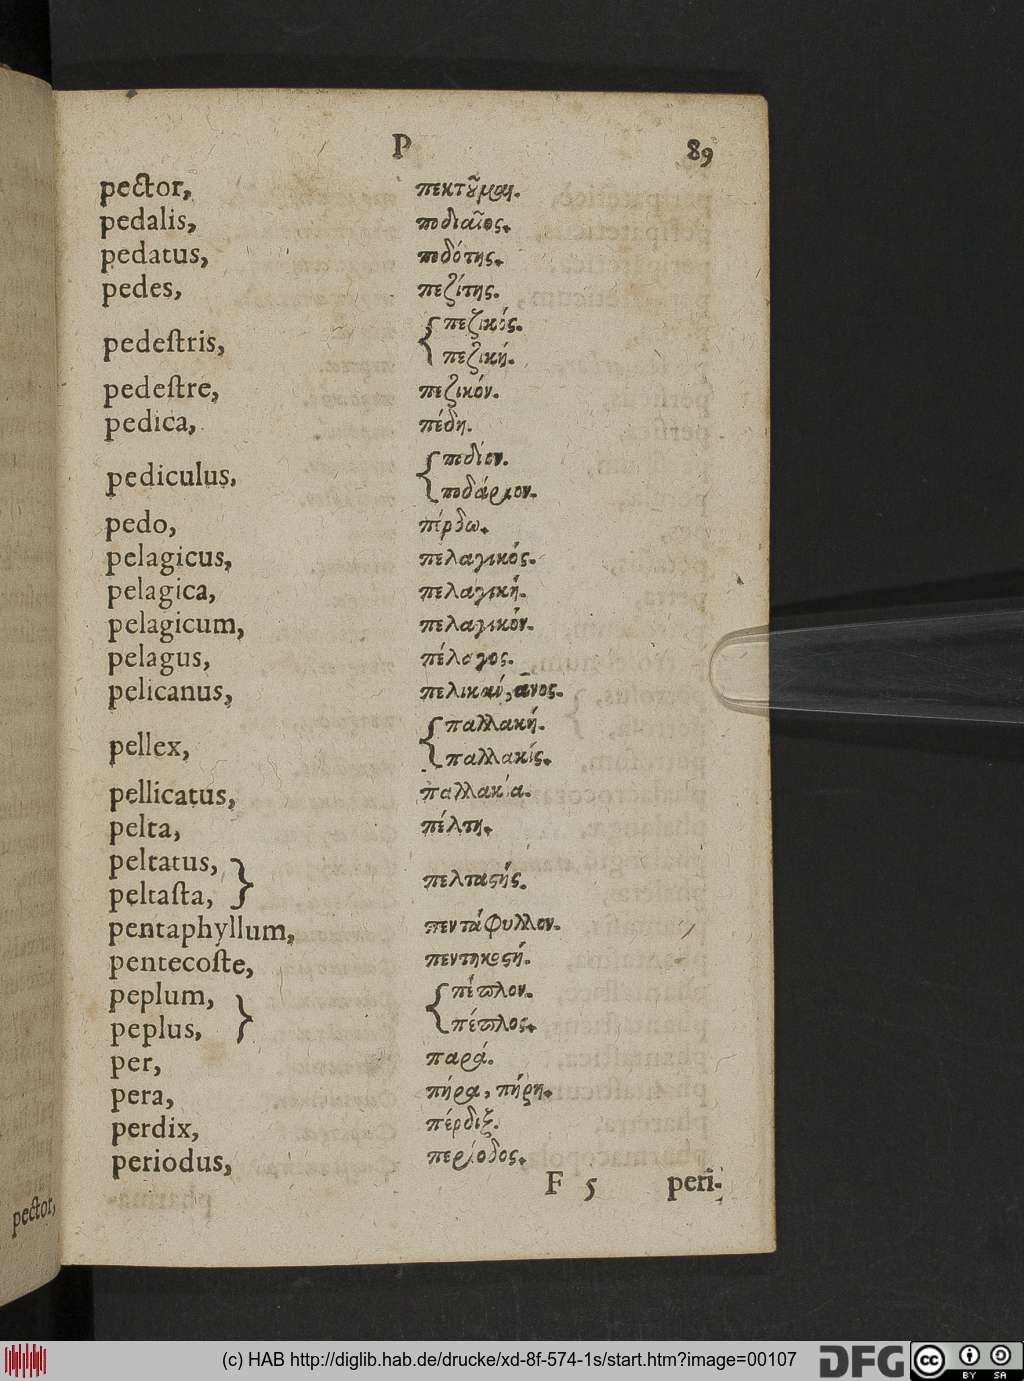 P 89
pector, πεκτοῦμαι.
pedalis, ποδιαῖος.
pedatus, ποδότης.
pedes, πεζίτης.
pedeſtris, { πεζικός.
πεζική.
pedeſtre, πεζικόν.
pedica, πέδη.
pediculus, { ποδίον.
ποδάριον.
pedo, πέρδω.
pelagicus, πελαγικός.
pelagica, πελαγική.
pelagicum, πελαγικόν.
pelagus, πέλαγος.
pelicanus, πελικαν́, ᾶνος.
pellex, { παλλακή.
παλλακίς.
pellicatus, παλλακία.
pelta, πέλτη.
peltatus, }
peltaſta, } πελταϛής.
pentaphyllum, πεντάφυλλον.
pentecoſte, πεντηκοϛή.
peplum, } { πέπλον.
peplus, } πέπλος.
per, παρά.
pera, πήρα, πήρη.
perdix, πέρδιξ.
periodus, περίοδος.
F 5 peri-
pector,
(c) HAB http://diglib.hab.de/drucke/xd-8f-574-1s/start.htm?image=00107
DFG
cc BY SA